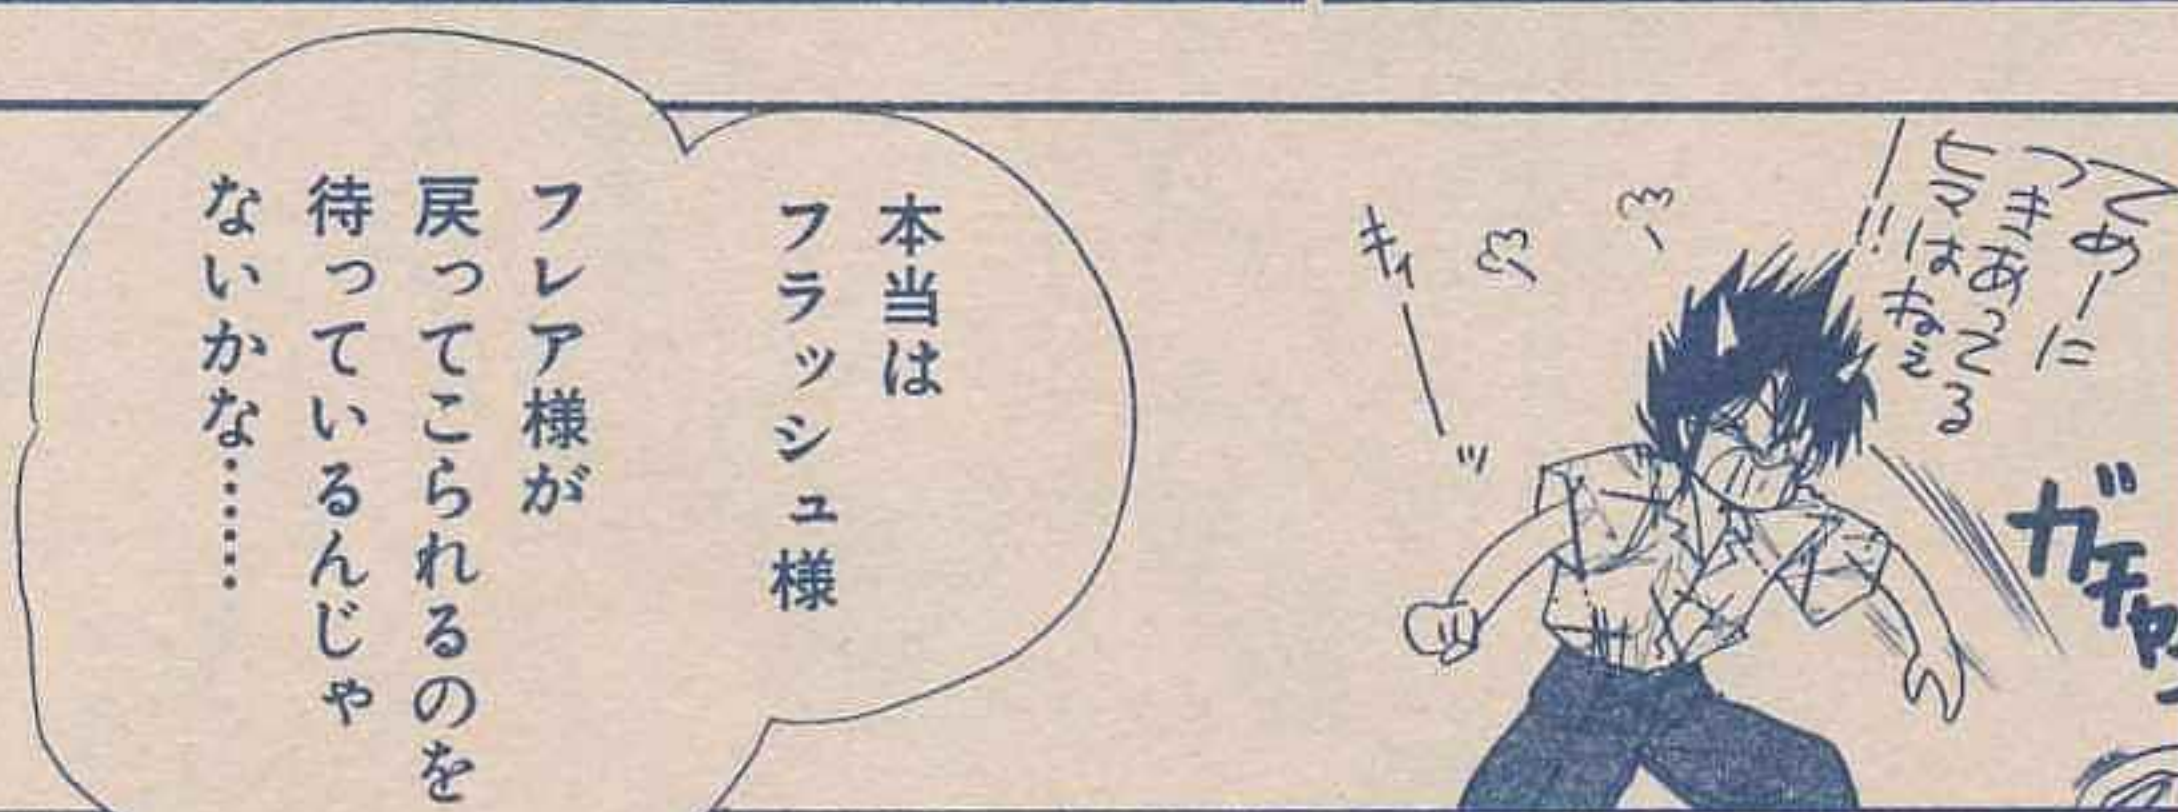 てめーに
つきあってる
ヒマはねぇ
!!
ガチャッ
キィーッ
本当は
フラッシュ様
フレア様が
戻ってこられるのを
待っているんじゃ
ないかな……